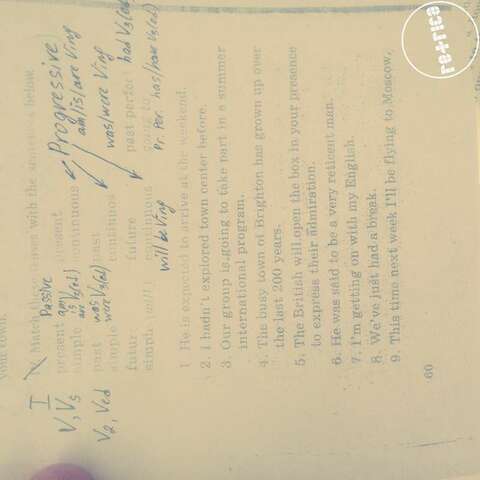 your town.
I
Match these tenses with the sentences below
Passive
present present Progressive
V, Vs am
is V3(ed)
are
simple continuous am/is/are Ving
V2, Ved past was past
were V3(ed)
simple continuos was/were Ving
futur: future past perfect had V3(ed)
simple (will) continuous going to
will be Ving Pr. Per. has/have V3(ed)
1. He is expected to arrive at the weekend.
2. I hadn't explored town center before.
3. Our group is going to take part in a summer
international program.
4. The busy town of Brighton has grown up over
the last 200 years.
5. The British will open the box in your presence
to express their admiration.
6. He was said to be a very reticent man.
7. I'm getting on with my English.
8. We've just had a break.
9. This time next week I'll be flying to Moscow.
60
retrica